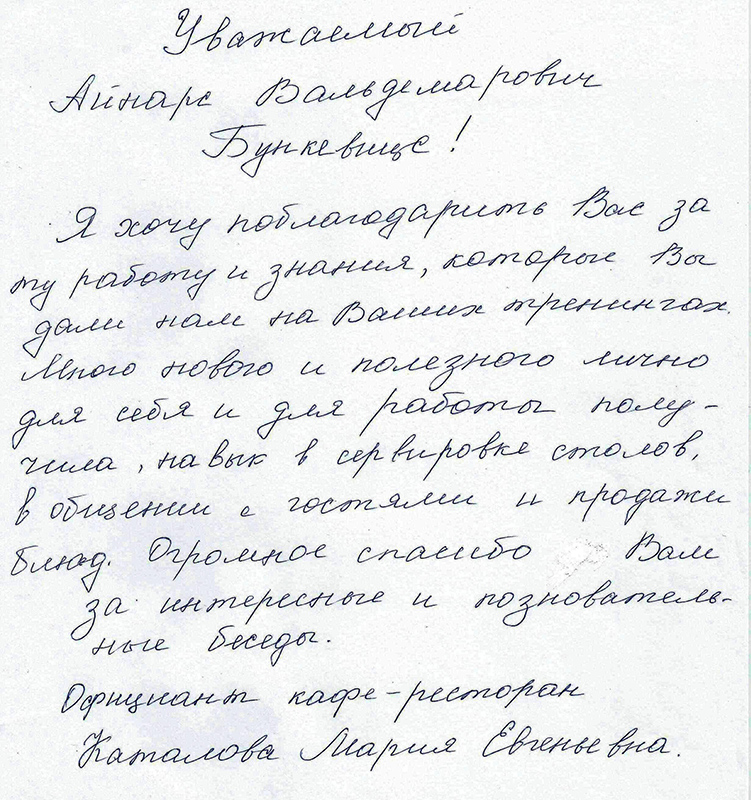 Уважаемый
Айнарс Вальдемарович
Бункевицс!
Я хочу поблагодарить Вас за
ту работу и знания, которые Вы
дали нам на Ваших тренингах.
Много нового и полезного лично
для себя и для работы полу-
чила, навык в сервировке столов,
в общении с гостями и продажи
блюд. Огромное спасибо Вам
за интересные и позновататель-
ные беседы.
Официант кафе-ресторан
Каталова Мария Евгеньевна.